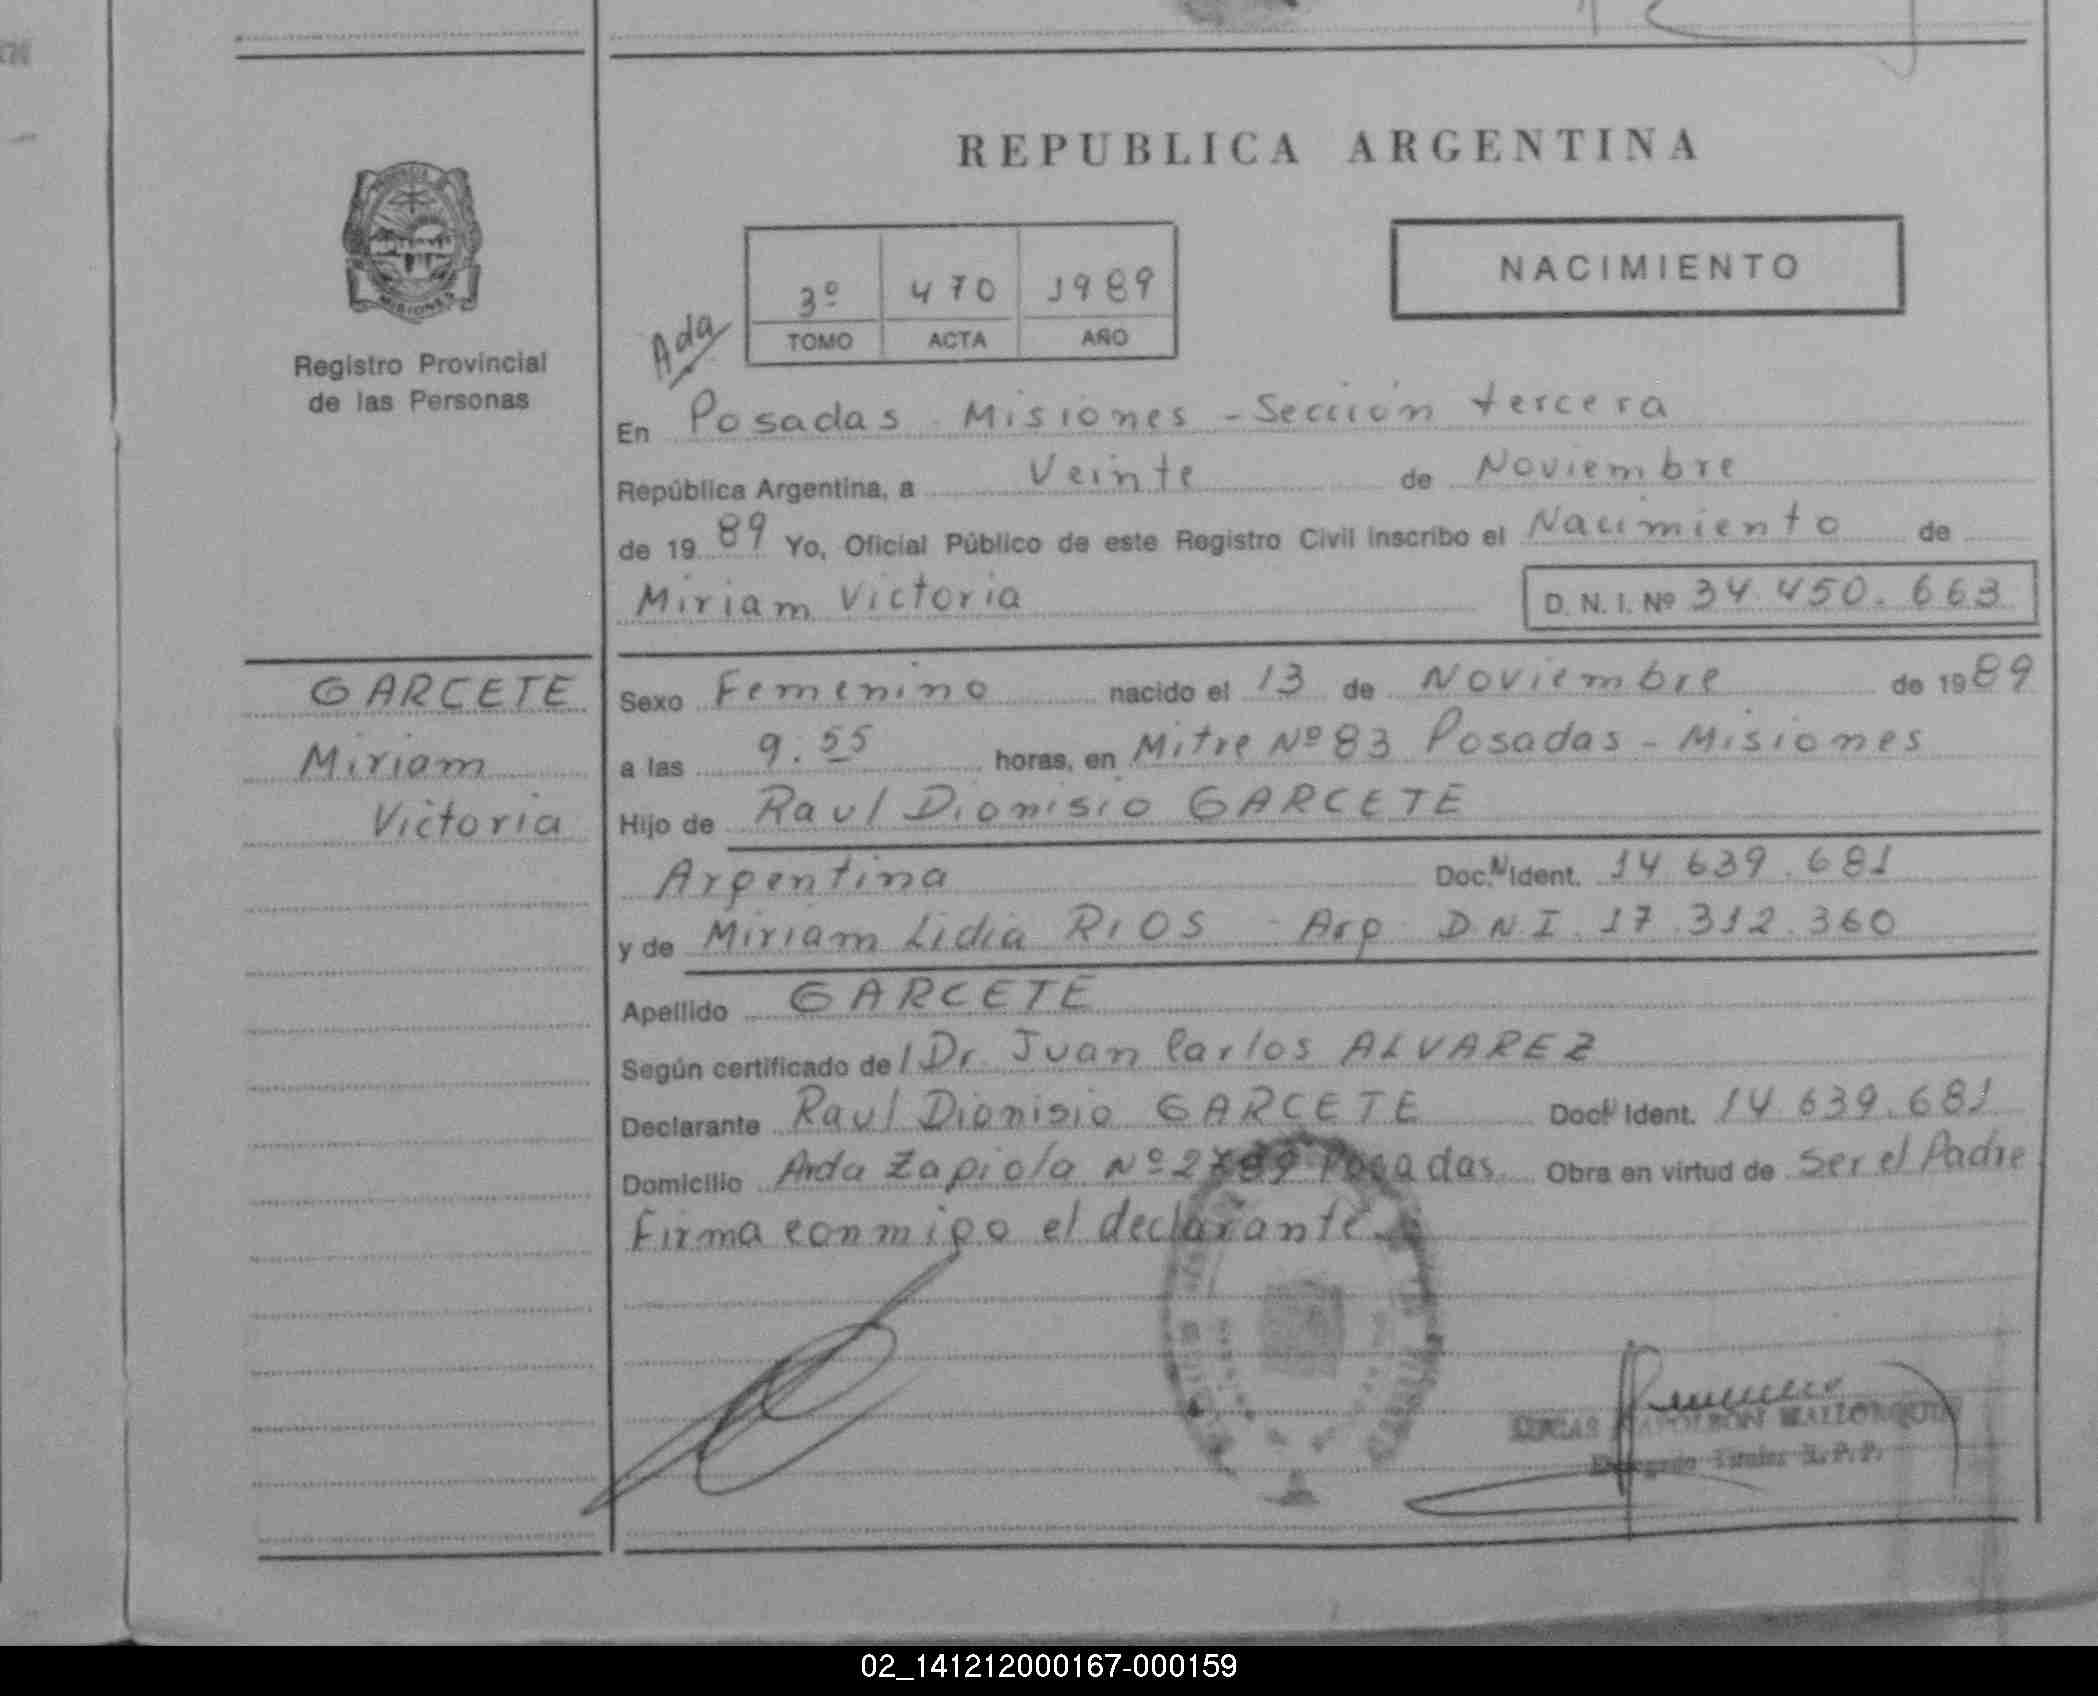 REPUBLICA ARGENTINA
MISIONES
Registro Provincial
de las Personas
3º 470 1989
TOMO ACTA AÑO
NACIMIENTO
Ada
En Posadas - Misiones - Sección tercera
República Argentina, a Veinte de Noviembre
de 1989 Yo, Oficial Público de este Registro Civil inscribo el Nacimiento de
Miriam Victoria D. N. I. Nº 34.450.663
GARCETE
Miriam
Victoria
Sexo Femenino nacido el 13 de Noviembre de 1989
a las 9.55 horas, en Mitre Nº 83 Posadas - Misiones
Hijo de Raul Dionisio GARCETE
Argentina Doc. N Ident. 14.639.681
y de Miriam Lidia RIOS - Arg. D.N.I. 17.312.360
Apellido GARCETE
Según certificado de l Dr. Juan Carlos ALVAREZ
Declarante Raul Dionisio GARCETE Doc. N Ident. 14.639.681
Domicilio Avda Zapiola Nº Posadas. Obra en virtud de Ser el Padre
Firma conmigo el declarante.
LUCAS NAPOLEON MALLORQUIN
Titular R.P.P.
02_141212000167-000159